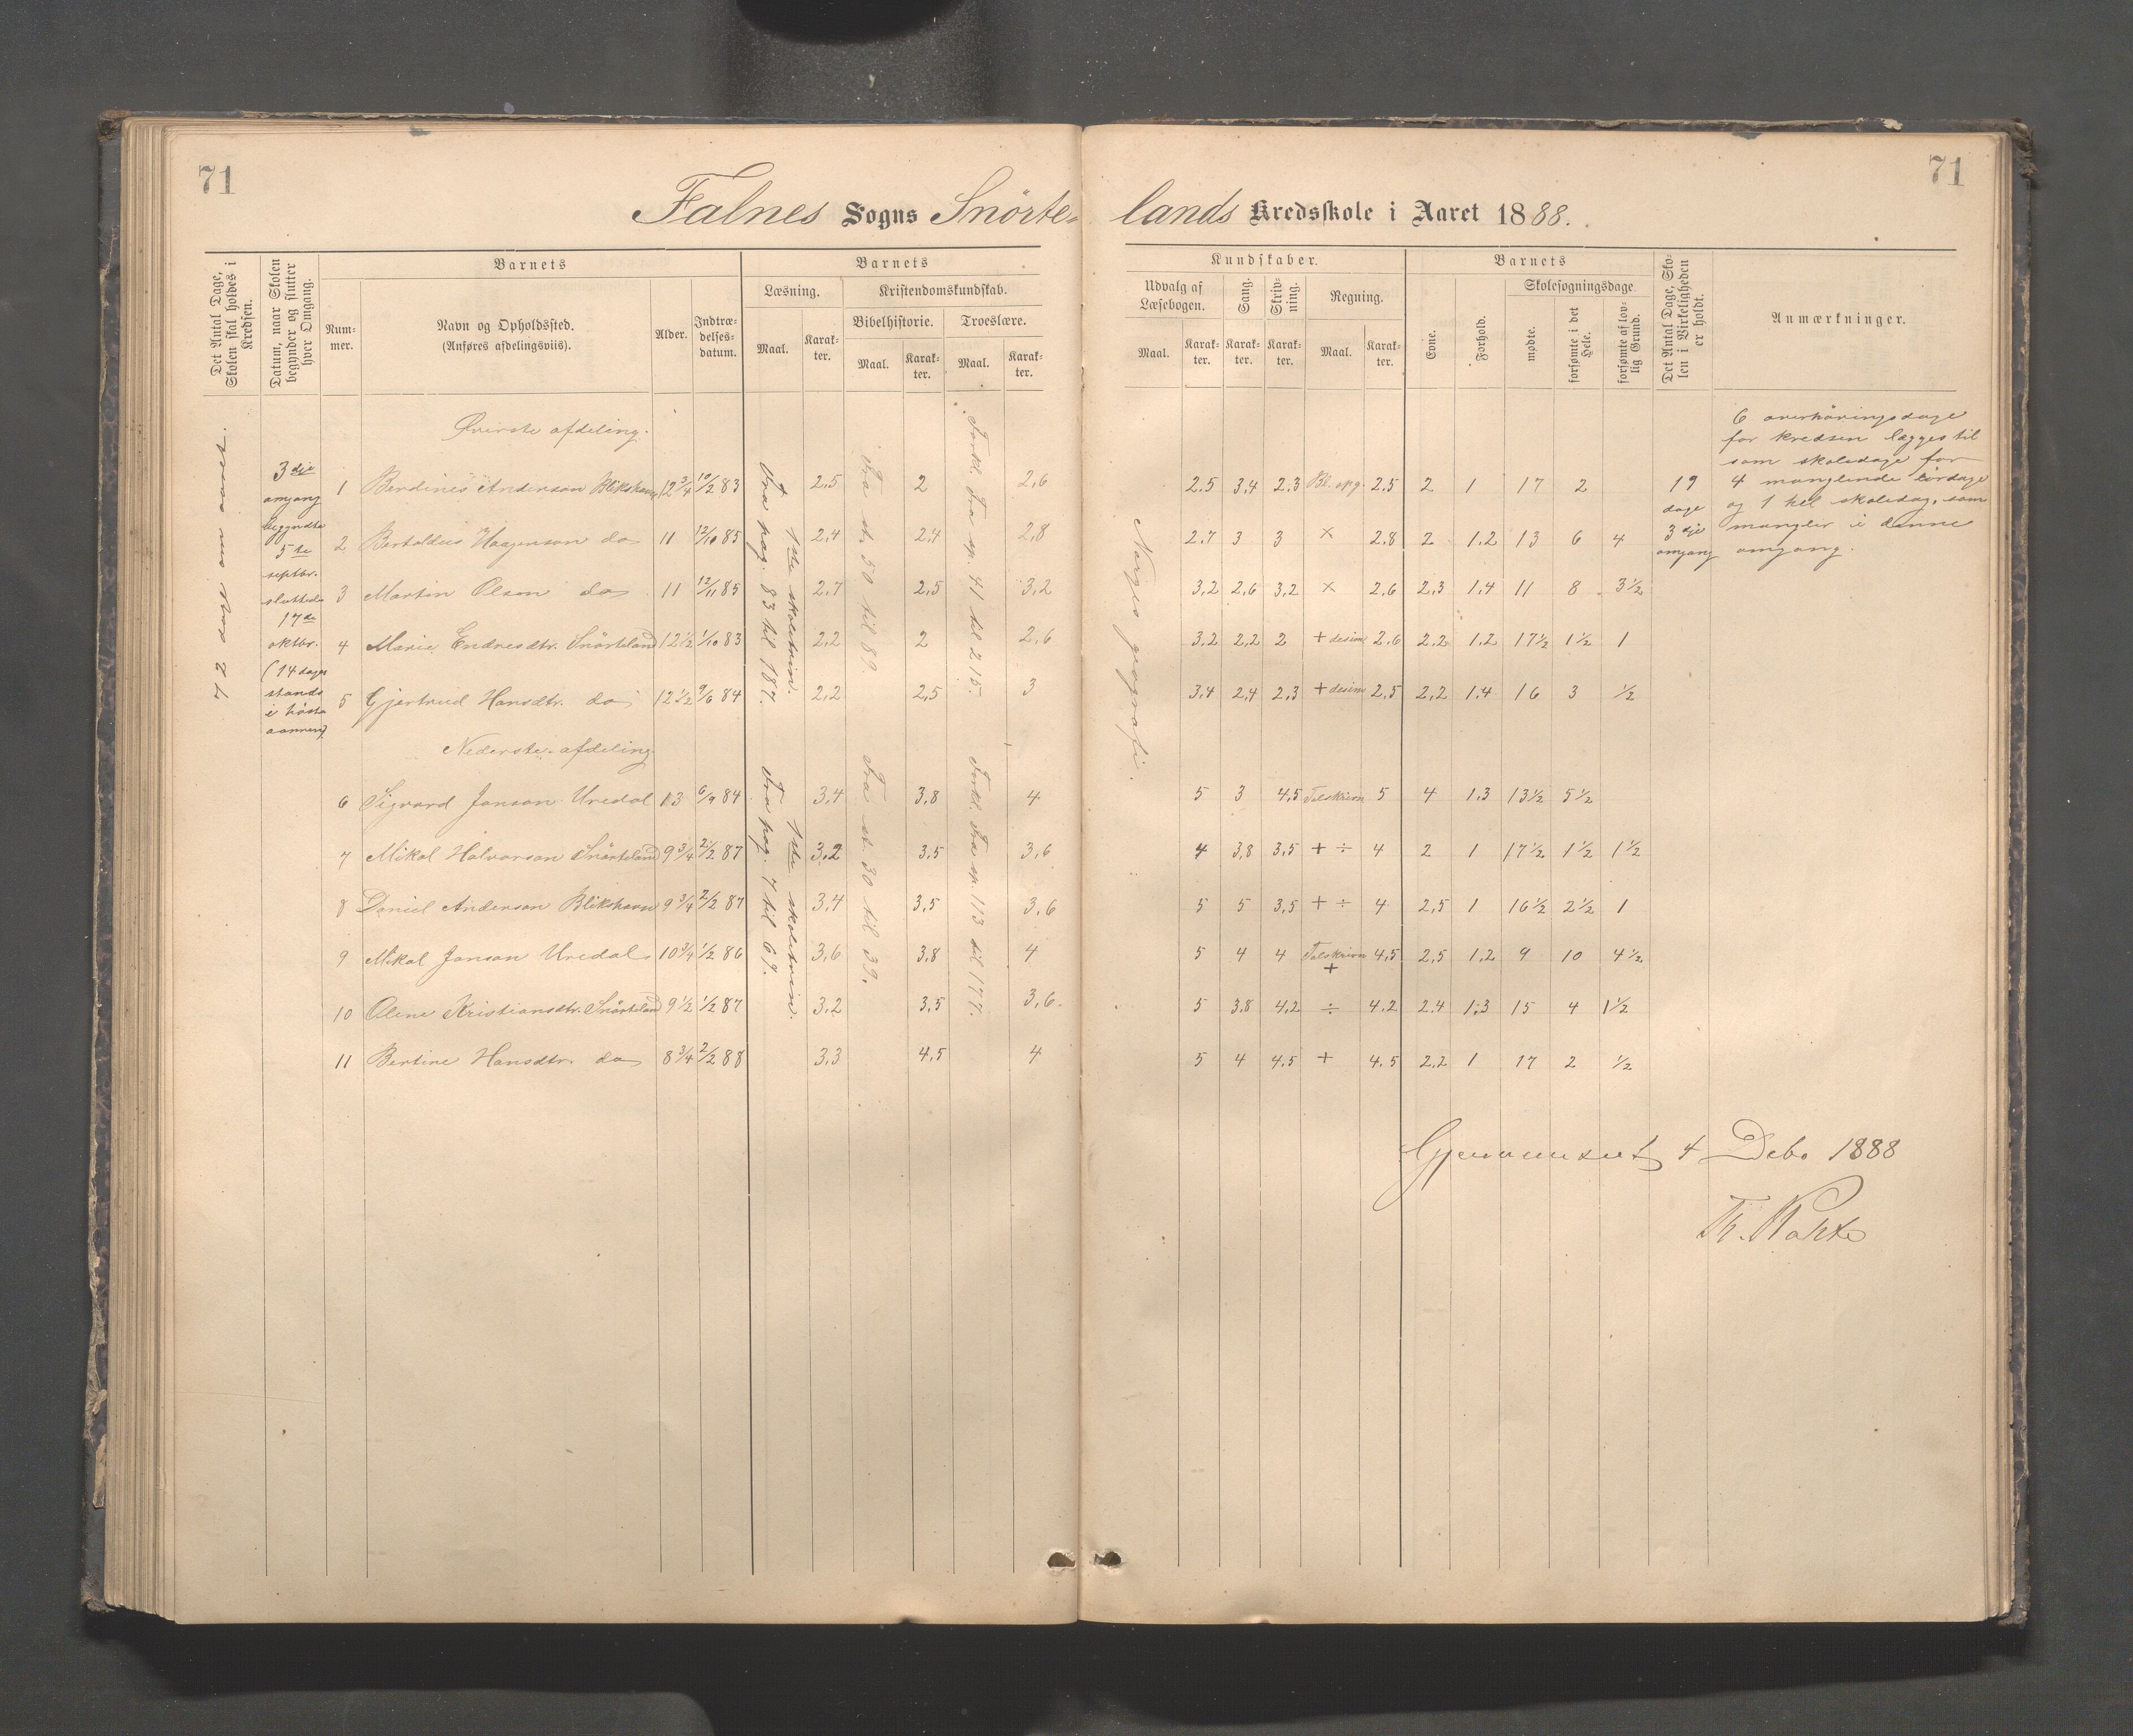 71
71
Falnes Sogns Snörte-
lands Kredsskole i Aaret 1888.
Det Antal Dage, Skolen skal holdes i Kredsen.
Datum, naar Skolen begynder og slutter hver Omgang.
Barnets
Num-
mer.
Navn og Opholdssted.
(Anføres afdelingsviis).
Alder.
Indtræ-
delses-
datum.
Barnets
Læsning.
Kristendomskundskab.
Bibelhistorie.
Troeslære.
Maal.
Karak-
ter.
Maal.
Karak-
ter.
Maal.
Karak-
ter.
Kundskaber.
Udvalg af
Læsebogen.
Sang.
Skriv-
ning.
Regning.
Maal.
Karak-
ter.
Karak-
ter.
Karak-
ter.
Maal.
Karak-
ter.
Barnets
Evne.
Forhold.
Skolesøgningsdage.
mødte.
forsømte i det Hele.
forsømte af lov-
lig Grund.
Det Antal Dage, Sko-
len i Virkeligheden
er holdt.
Anmærkninger.
72 som aaret.
3dje
omgang
begyndte
5te
septbr.
sluttede
17de
oktbr.
(14 dages
stands
i høst
aannen)
Øverste afdeling.
1 Berdines Anderson Blikshavn 12 3/4 10/2 83 2,5 2 2,6 2.5 3,4 2.3 Bl. opg. 2.5 2 1 17 2
2 Bertoldus Haagenson do 11 12/10 85 2,4 2,4 2,8 2.7 3 3 × 2.8 2 1.2 13 6 4
3 Martin Olson do 11 12/11 85 2,7 2,5 3,2 3,2 2,6 3,2 × 2,6 2,3 1.4 11 8 3 1/2
4 Marie Endresdtr. Snörteland 12 1/2 1/10 83 2,2 2 2,6 3,2 2,2 2 + desim 2.6 2,2 1.2 17 1/2 1 1/2 1
5 Gjertrud Hansdtr. do 12 1/2 9/6 84 2,2 2,5 3 3,4 2,4 2,3 + desim 2,5 2,2 1.4 16 3 1/2
Fra pag. 83 til 187.
1ste skoletrin.
Fra st. 50 til 89.
Forkl. Fra sp. 41 til 215.
Norges geografi.
Nederste afdeling.
6 Sigvard Janson Uredal 13 6/9 84 3,4 3,8 4 5 3 4,5 Talskrivn 5 4 1,3 13 1/2 5 1/2
7 Mikal Halvorson Snörteland 9 3/4 2/2 87 3,2 3,5 3,6 4 3,8 3,5 + ÷ 4 2 1 17 1/2 1 1/2 1 1/2
8 Daniel Anderson Blikshavn 9 3/4 2/2 87 3,4 3,5 3,6 5 5 3,5 + ÷ 4 2,5 1 16 1/2 2 1/2 1
9 Mikal Janson Uredal 10 3/4 1/2 86 3,6 3,8 4 5 4 4 Talskrivn + 4,5 2,5 1.2 9 10 4 1/2
10 Olene Kristiansdtr. Snörteland 9 1/2 1/2 87 3,2 3,5 3,6 5 3,8 4,2 ÷ 4.2 2.4 1,3 15 4 1 1/2
11 Bertine Hansdtr. do 8 3/4 2/2 88 3,3 4,5 4 5 4 4,5 + 4,5 2,2 1 17 2 1/2
Fra pag. 7 til 67.
1ste skoletrin.
Fra st. 30 til 39.
Forkl. Fra sp. 113 til 177.
19
dage
3dje
omgang
6 overhöringsdage
for kredsen lægges til
som skoledage for
4 manglende lördage
og 1 hel skoledag, som
mangler i denne
omgang.
Gjennemseet 4 Debr 1888